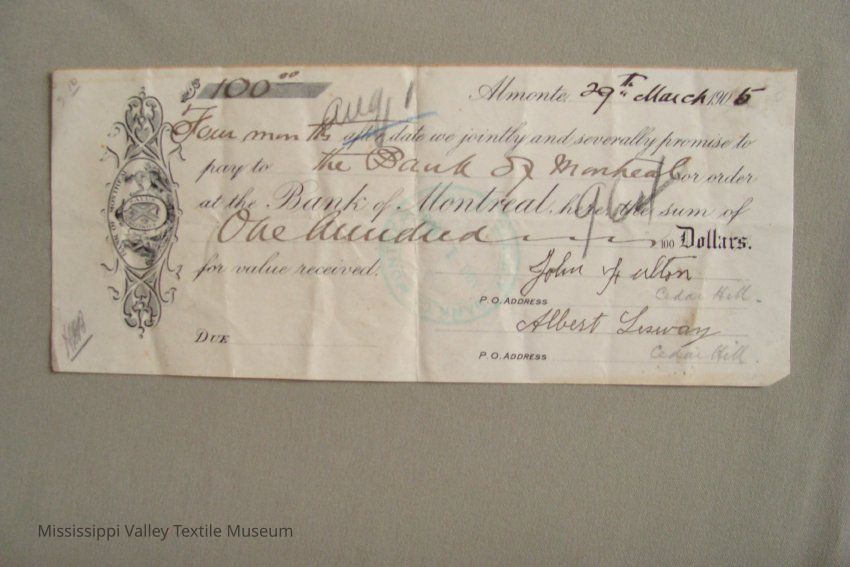 $ 100.00
Almonte, 29th March 1905
Aug 1
Four months after date we jointly and severally promise to
pay to the Bank of Montreal or order
at the Bank of Montreal, here the sum of
One hundred 100 Dollars.
for value received. John Fulton
P.O. ADDRESS Cedar Hill.
Albert
DUE
P.O. ADDRESS Cedar Hill
BANK OF MONTREAL
Mississippi Valley Textile Museum